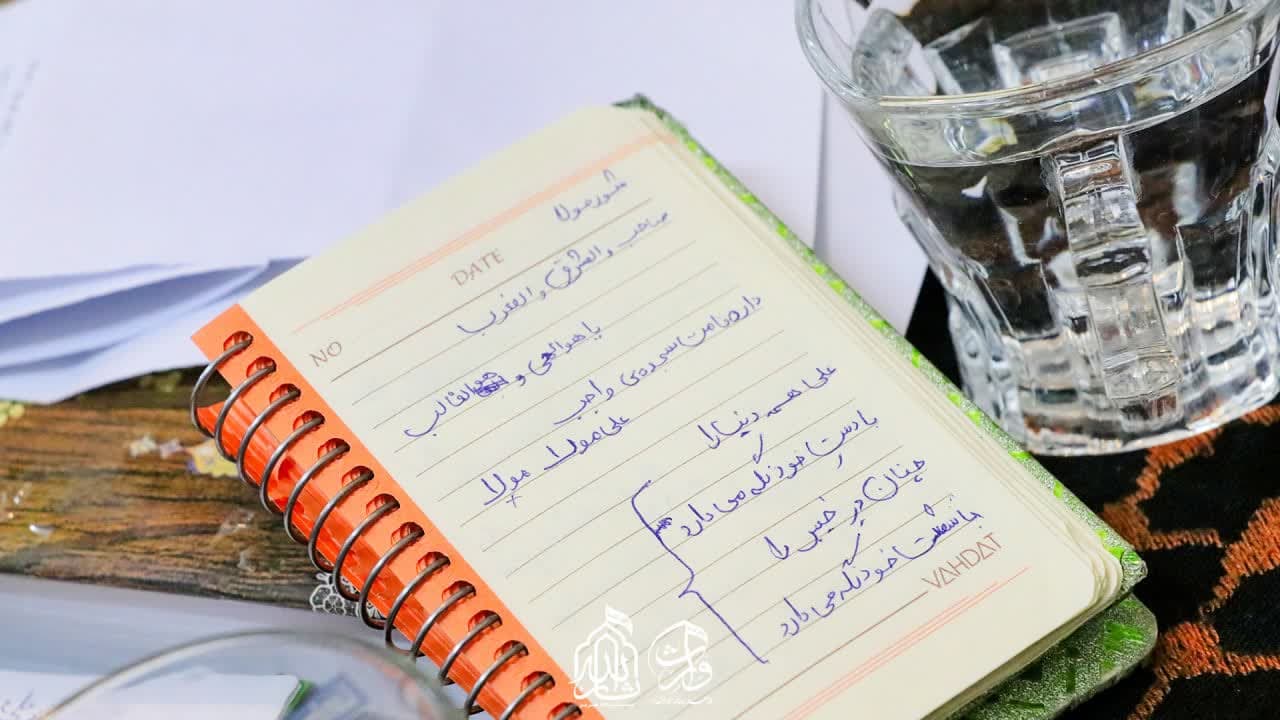 DATE
NO
شور مولا
صاحب والمشرق و المغرب
یا هوالحی و الغالب
دارد ضامن سجده‌ی واجب
علی مولا مولا
علی همه دنیا را
با دست خود نگه می دارد
چنان در خیبر را
با انگشت خود نگه می دارد
VAHDAT